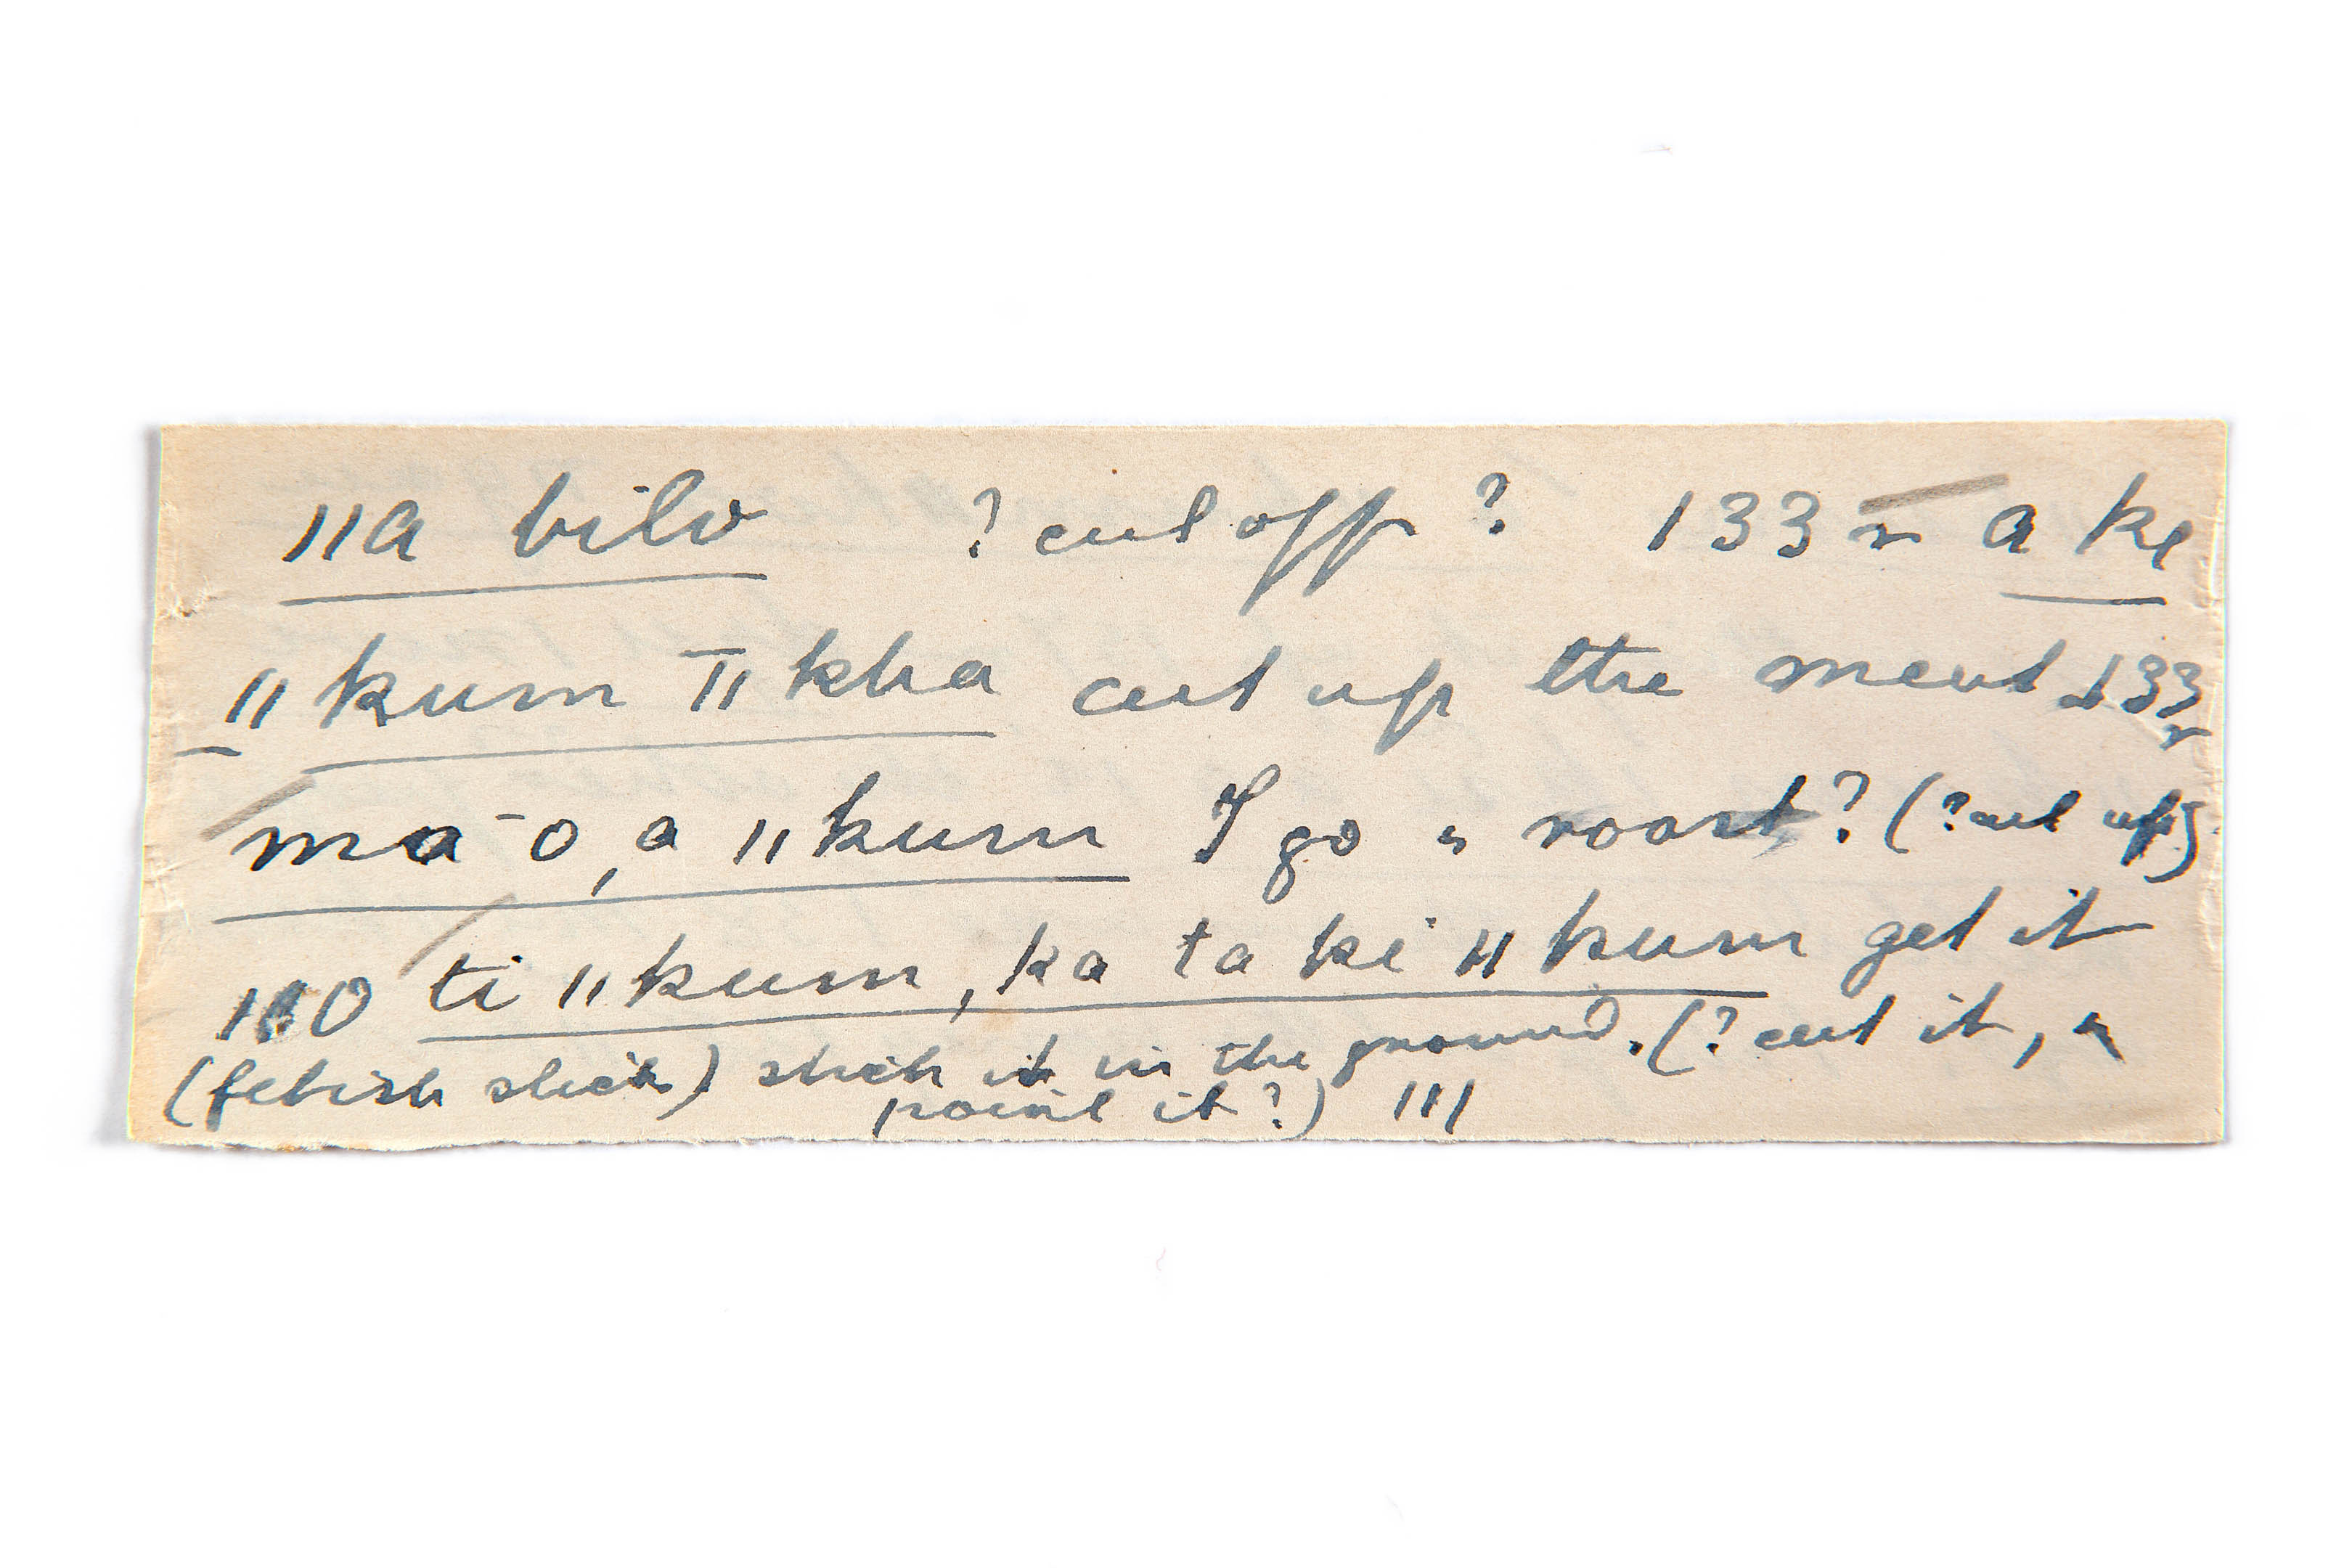 ǁa bilo ? cut off ? 133 r a ke
ǁkum ǁkha cut up the meat 133 r
ma o, a ǁkum I go & roast? (? cut up)
110 ti ǁkum, ka ta ki ǁkum get it
(fetish stick) stick it in the ground. (? cut it, &
point it?) 111